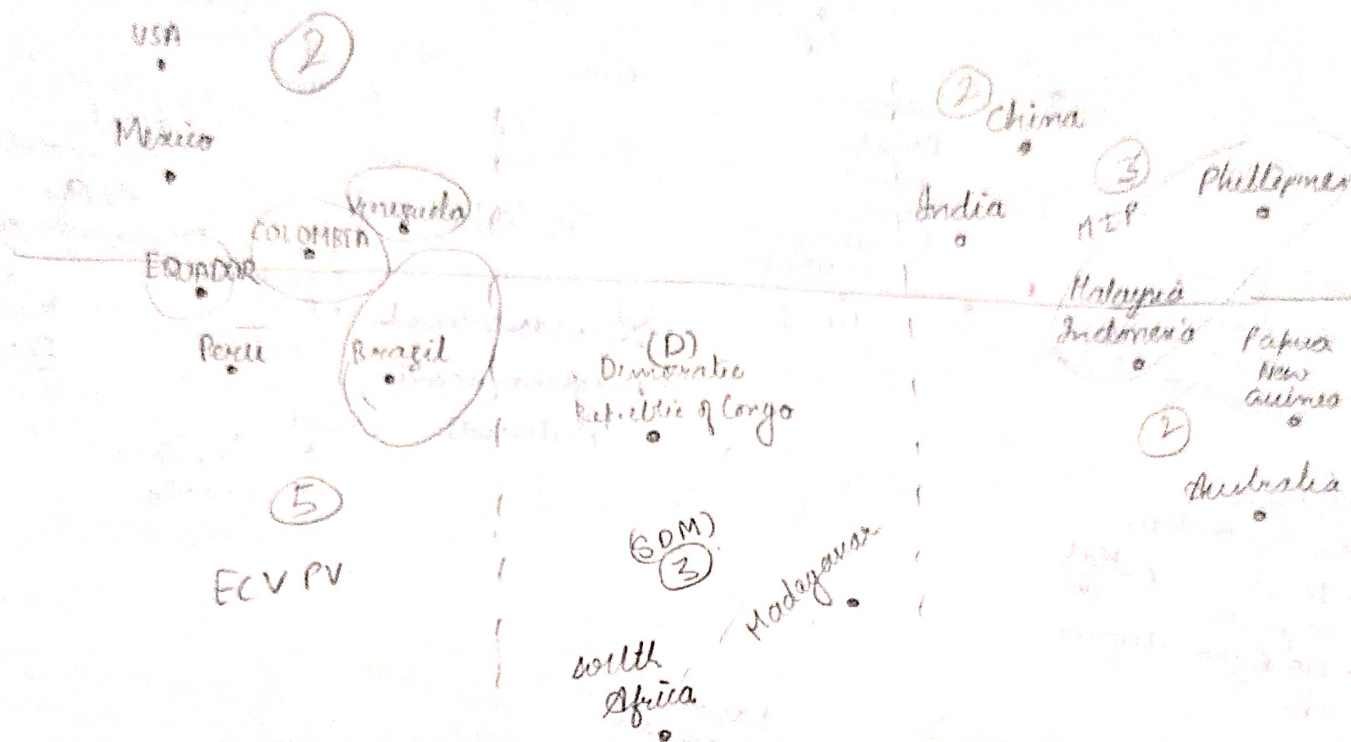 USA
2
Mexico
Venezuela
COLOMBIA
EQUADOR
Peru
Brazil
5
ECV PV
(D)
Democratic
Republic of Congo
(SDM)
3
Madagascar
South
Africa
2
China
India
3
MIP
Phillipines
Malaysia
Indonesia
Papua
New
Guinea
2
Australia